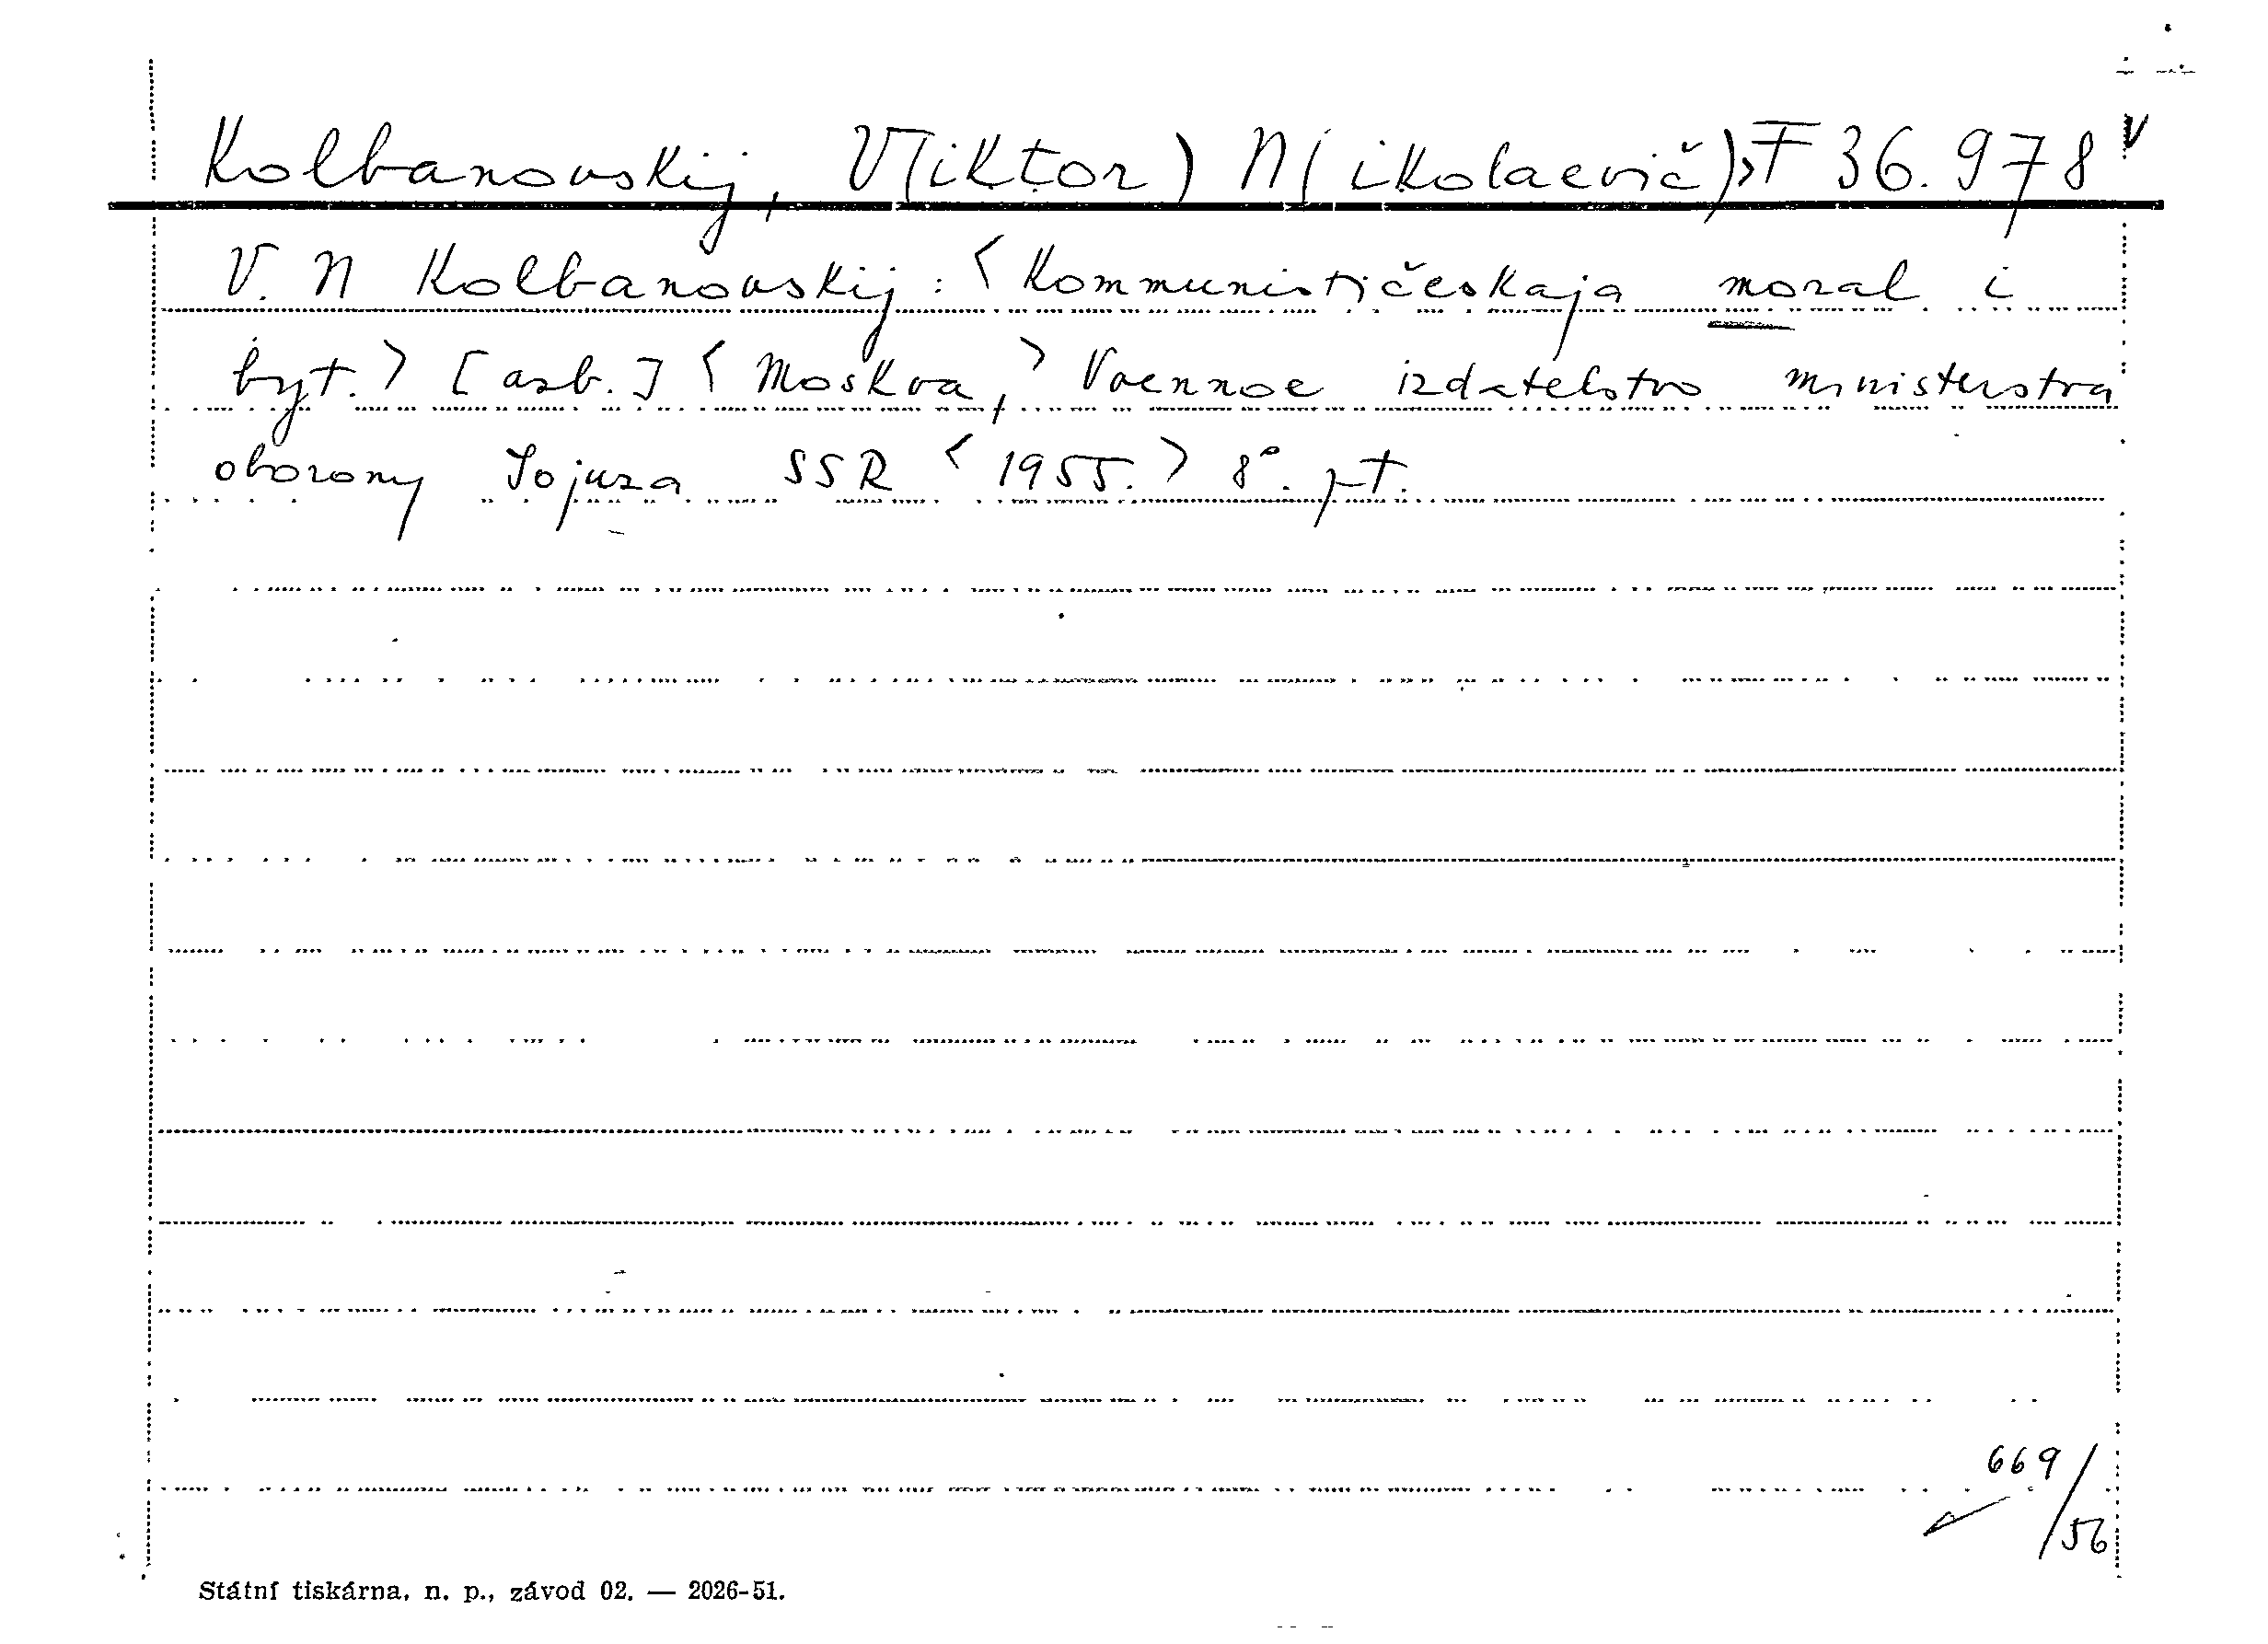 Kolbanovskij, V(iktor) N(ikolaevič)> F 36.978
V. N Kolbanovskij : <Kommunističeskaja moral i
byt.> [azb.] < Moskva,> Voennoe izdatelstvo ministerstva
oborony Sojuza SSR < 1955. > 8°. pt.
669/56
Státní tiskárna, n. p., závod 02. — 2026-51.